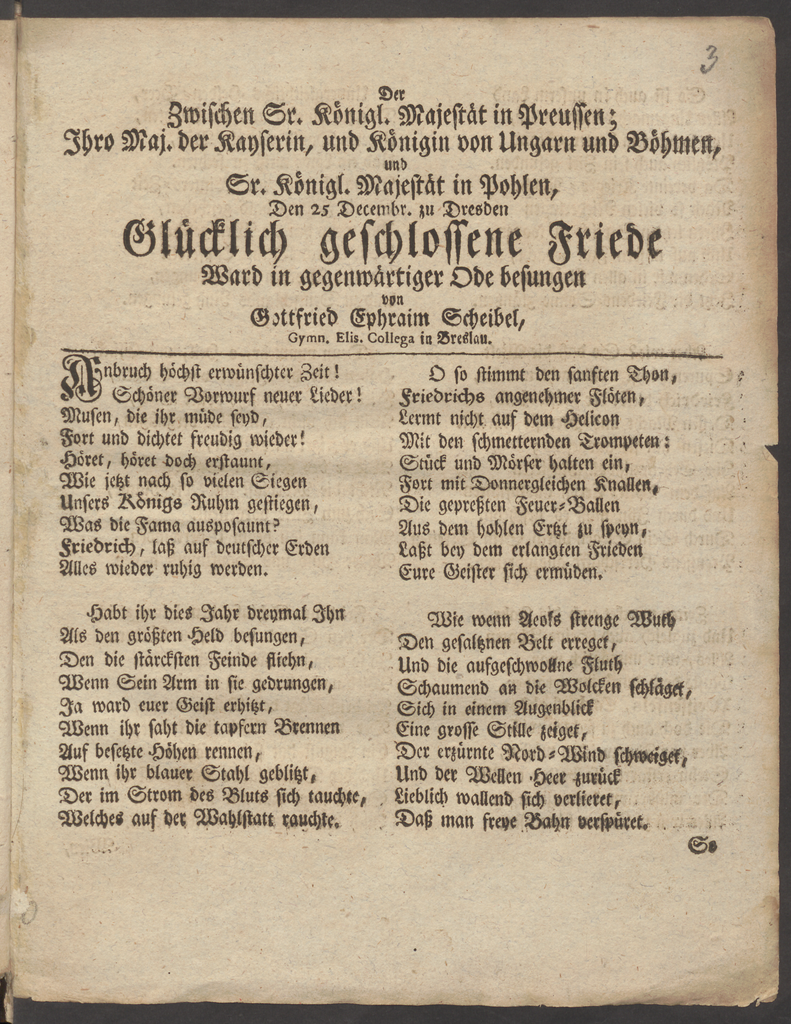 3
Der
Zwischen Sr. Königl. Majestät in Preussen;
Ihro Maj. der Kayserin, und Königin von Ungarn und Böhmen,
und
Sr. Königl. Majestät in Pohlen,
Den 25 Decembr. zu Dresden
Glücklich geschlossene Friede
Ward in gegenwärtiger Ode besungen
von
Gottfried Ephraim Scheibel,
Gymn. Elis. Collega in Breslau.
Anbruch höchst erwünschter Zeit!
Schöner Vorwurf neuer Lieder!
Musen, die ihr müde seyd,
Fort und dichtet freudig wieder!
Höret, höret doch erstaunt,
Wie jetzt nach so vielen Siegen
Unsers Königs Ruhm gestiegen,
Was die Fama ausposaunt?
Friedrich, laß auf deutscher Erden
Alles wieder ruhig werden.
Habt ihr dies Jahr dreymal Ihn
Als den größten Held besungen,
Den die stärcksten Feinde fliehn,
Wenn Sein Arm in sie gedrungen,
Ja ward euer Geist erhitzt,
Wenn ihr saht die tapfern Brennen
Auf besetzte Höhen rennen,
Wenn ihr blauer Stahl geblitzt,
Der im Strom des Bluts sich tauchte,
Welches auf der Wahlstatt rauchte.
O so stimmt den sanften Thon,
Friedrichs angenehmer Flöten,
Lermt nicht auf dem Helicon
Mit den schmetternden Trompeten:
Stück und Mörser halten ein,
Fort mit Donnergleichen Knallen,
Die gepreßten Feuer-Ballen
Aus dem hohlen Ertzt zu speyn,
Laßt bey dem erlangten Frieden
Eure Geister sich ermüden.
Wie wenn Aeols strenge Wuth
Den gesaltznen Belt erreget,
Und die aufgeschwollne Fluth
Schaumend an die Wolcken schläget,
Sich in einem Augenblick
Eine grosse Stille zeiget,
Der erzürnte Nord-Wind schweiget,
Und der Wellen Heer zurück
Lieblich wallend sich verlieret,
Daß man freye Bahn verspüret.
So